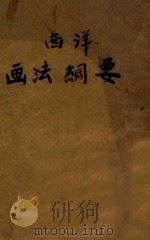 西洋
画法綱要
研狗
mtoou.info